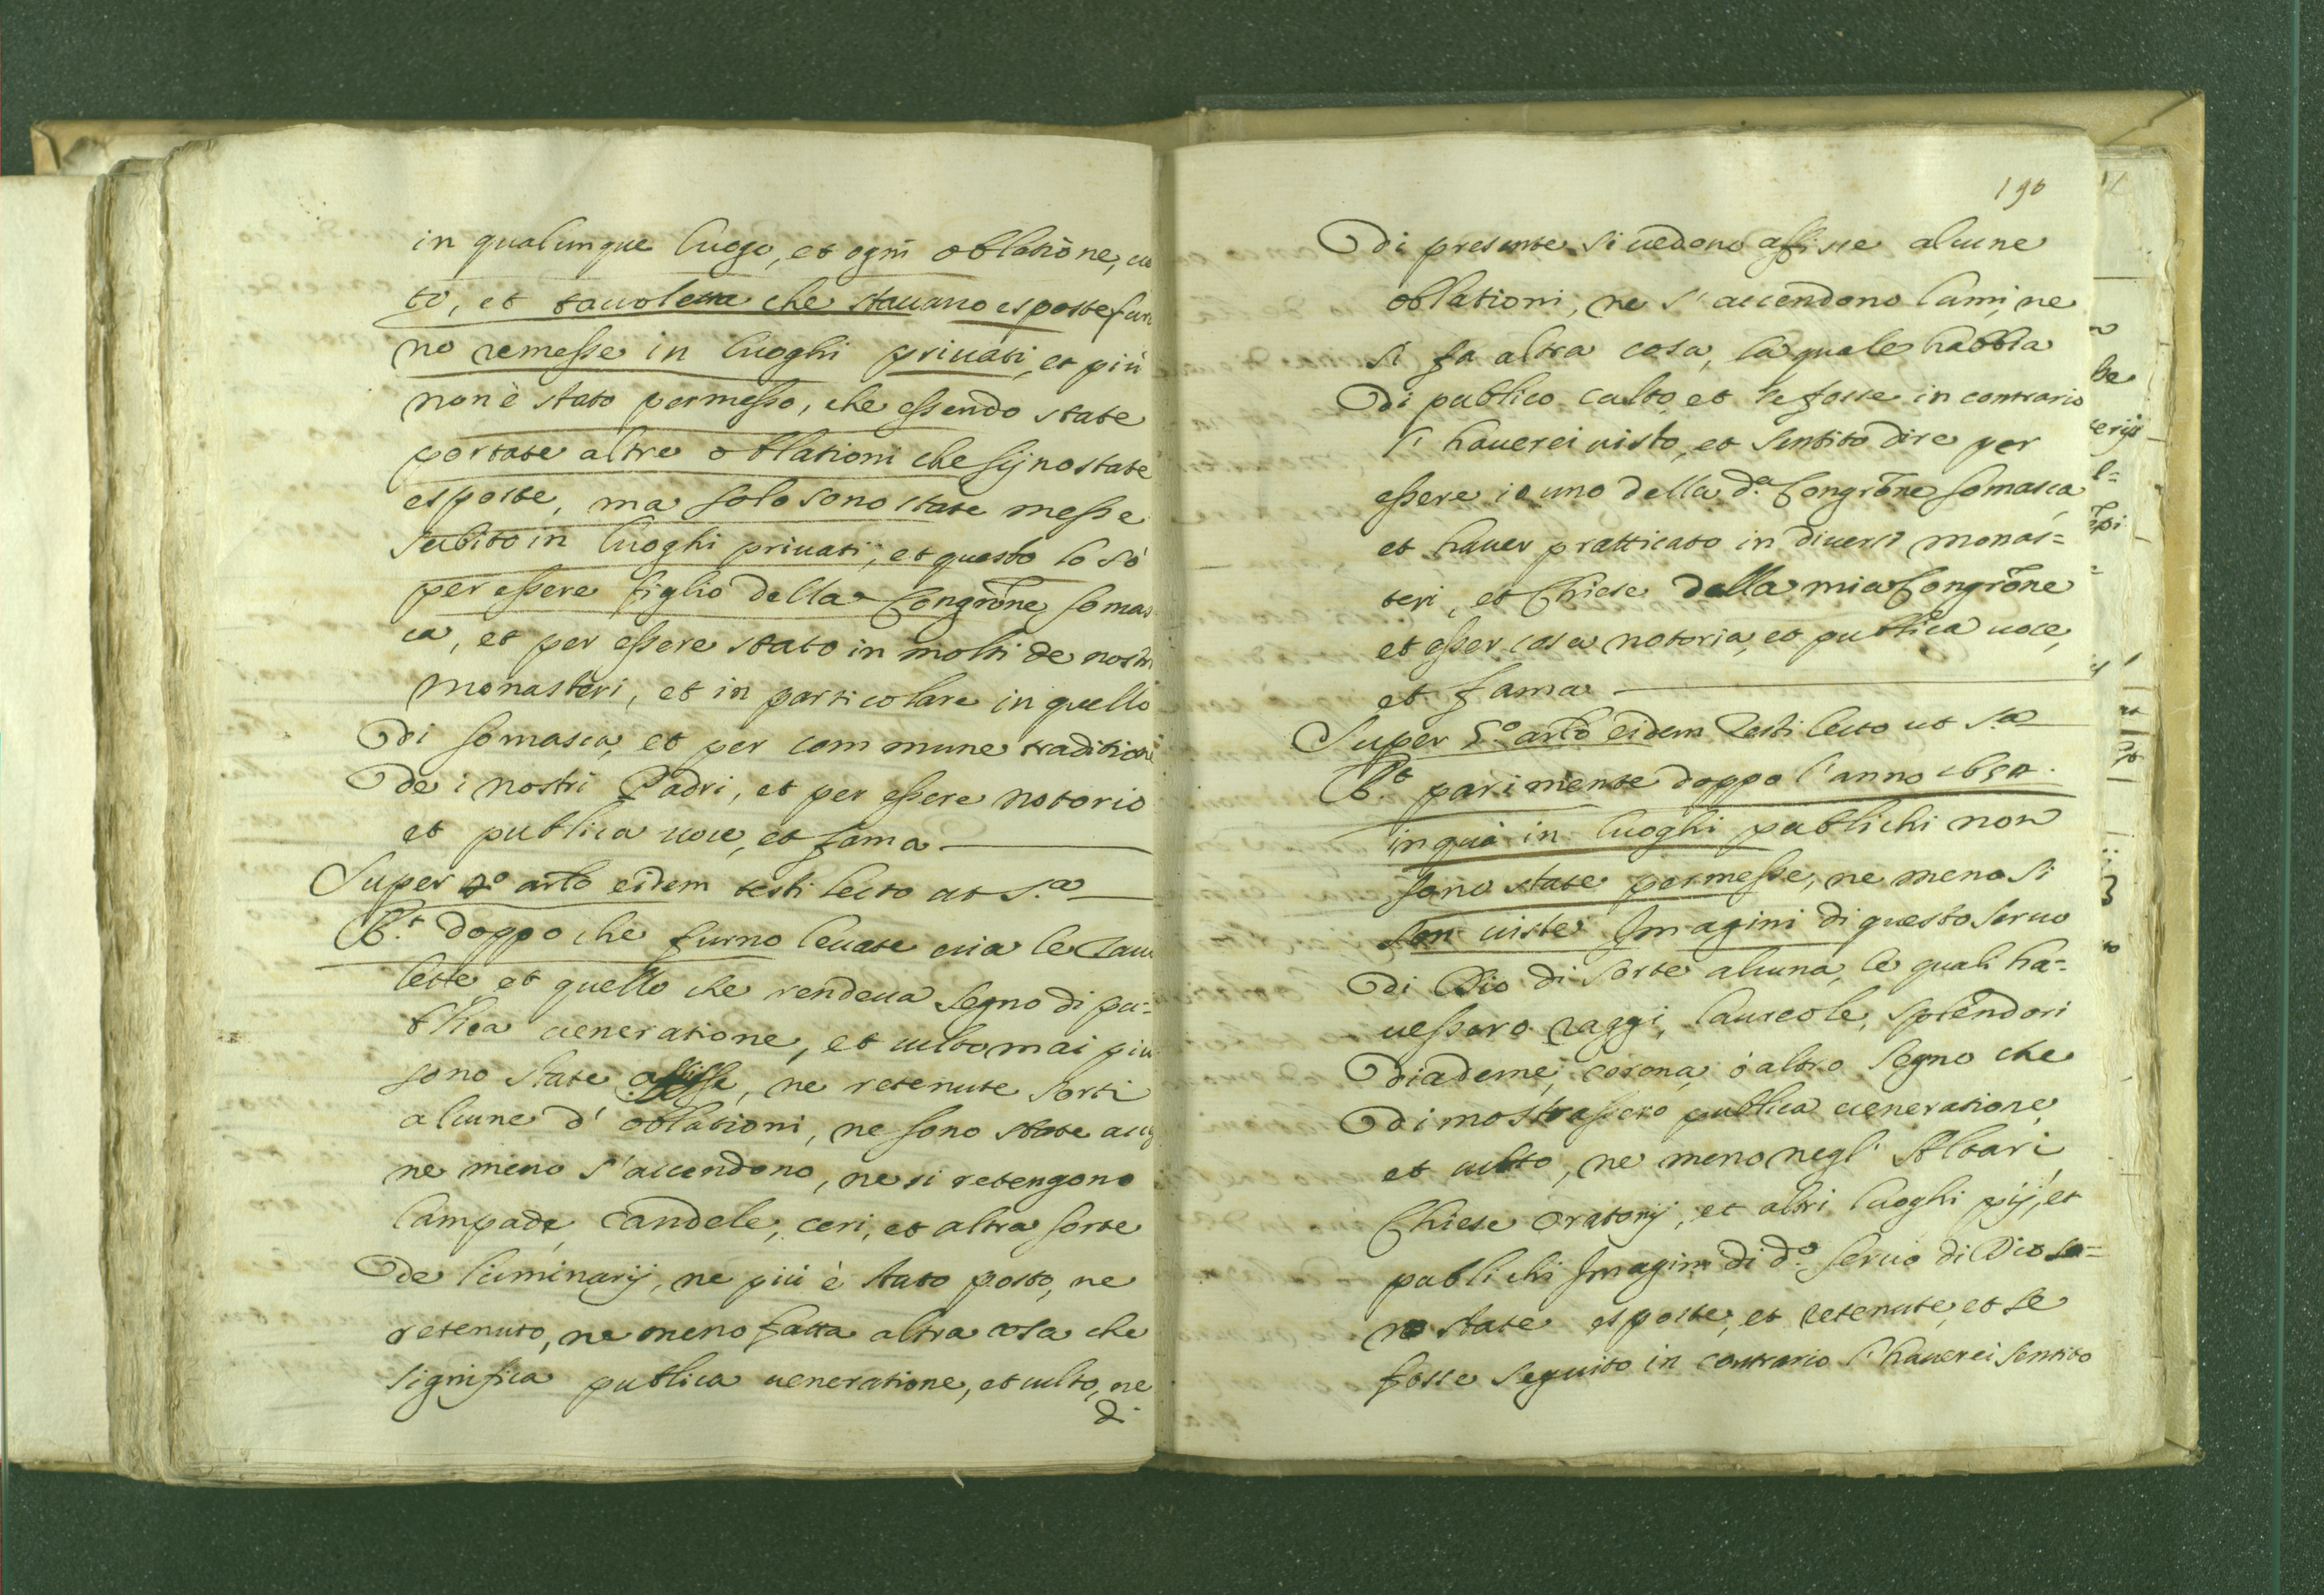 in qualunque luogo, et ogni oblatione, uo
ti, et tauolette che stauano esposte fur
no remesse in luoghi priuati, et più
non è stato permesso, che essendo state
portate altre oblationi che sijno state
esposte, ma solo sono state messe
subito in luoghi priuati, et questo lo sò
per essere figlio della Congrōne somas
ca, et per essere stato in molti de nostri
Monasteri, et in particolare in quello
di somasca, et per commune traditione
de i nostri Padri, et per essere notorio
et publica uoce, et fama
Super 4.º artō eidem testi lecto ut s.ª
R.t doppo che furno leuate uia le tauo
lette et quello che rendeua segno di pu=
blica ueneratione, et culto mai piu
sono state affisse, ne retenute sorti
alcune d' oblationi, ne sono state acc
ne meno s'accendono, ne si retengono
lampade, candele, ceri, et altra sorte
de luminarij, ne più è stato posto, ne
retenuto, ne meno fatta altra cosa che
significa publica ueneratione, et culto, ne
di
190
di presente si uedono affisse alcune
oblationi, ne s'accendono lumi, ne
si fa altra cosa, la quale habbia
di publico culto, et se fosse in contrario
l' hauerei uisto, et sentito dire per
essere io uno della d.ª Congrōne somasca,
et hauer pratticato in diuersi monas=
teri, et Chiese della mia Congrōne
et esser cosa notoria, et publica uoce,
et fama
Super 5.º artō eidem testi lecto ut s.ª
R.t parimente doppo l'anno 1650.
in quà in luoghi publichi non
sono state permesse, ne meno si
son uiste Imagini di questo seruo
di Dio di sorte alcuna, le quali ha=
uessero raggi, laureole, splendori
diademe, corona, ò altro segno che
dimostrassero publica ueneratione,
et culto, ne meno negl' Altari
Chiese Oratorij, et altri luoghi pij, et
publichi Imagini di d.º seruo di Dio so=
no state esposte, et retenute, et se
fosse seguito in contrario l'hauerei sentito